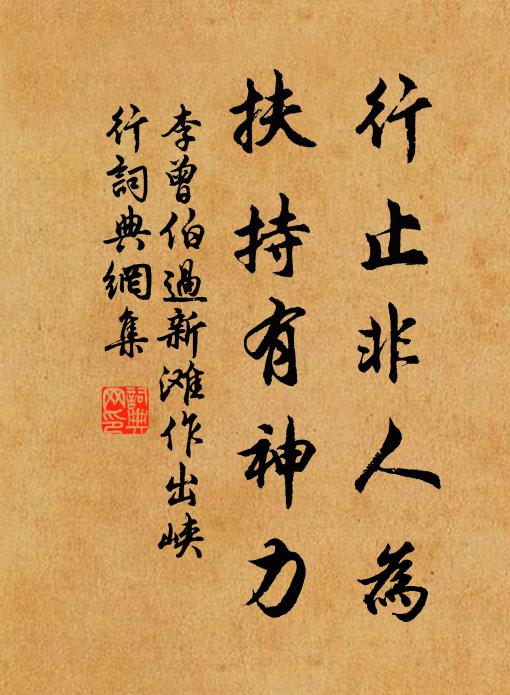 行止非人為
扶持有神力
李曾伯過新滩作出峽
行詞典網集
詞典網印